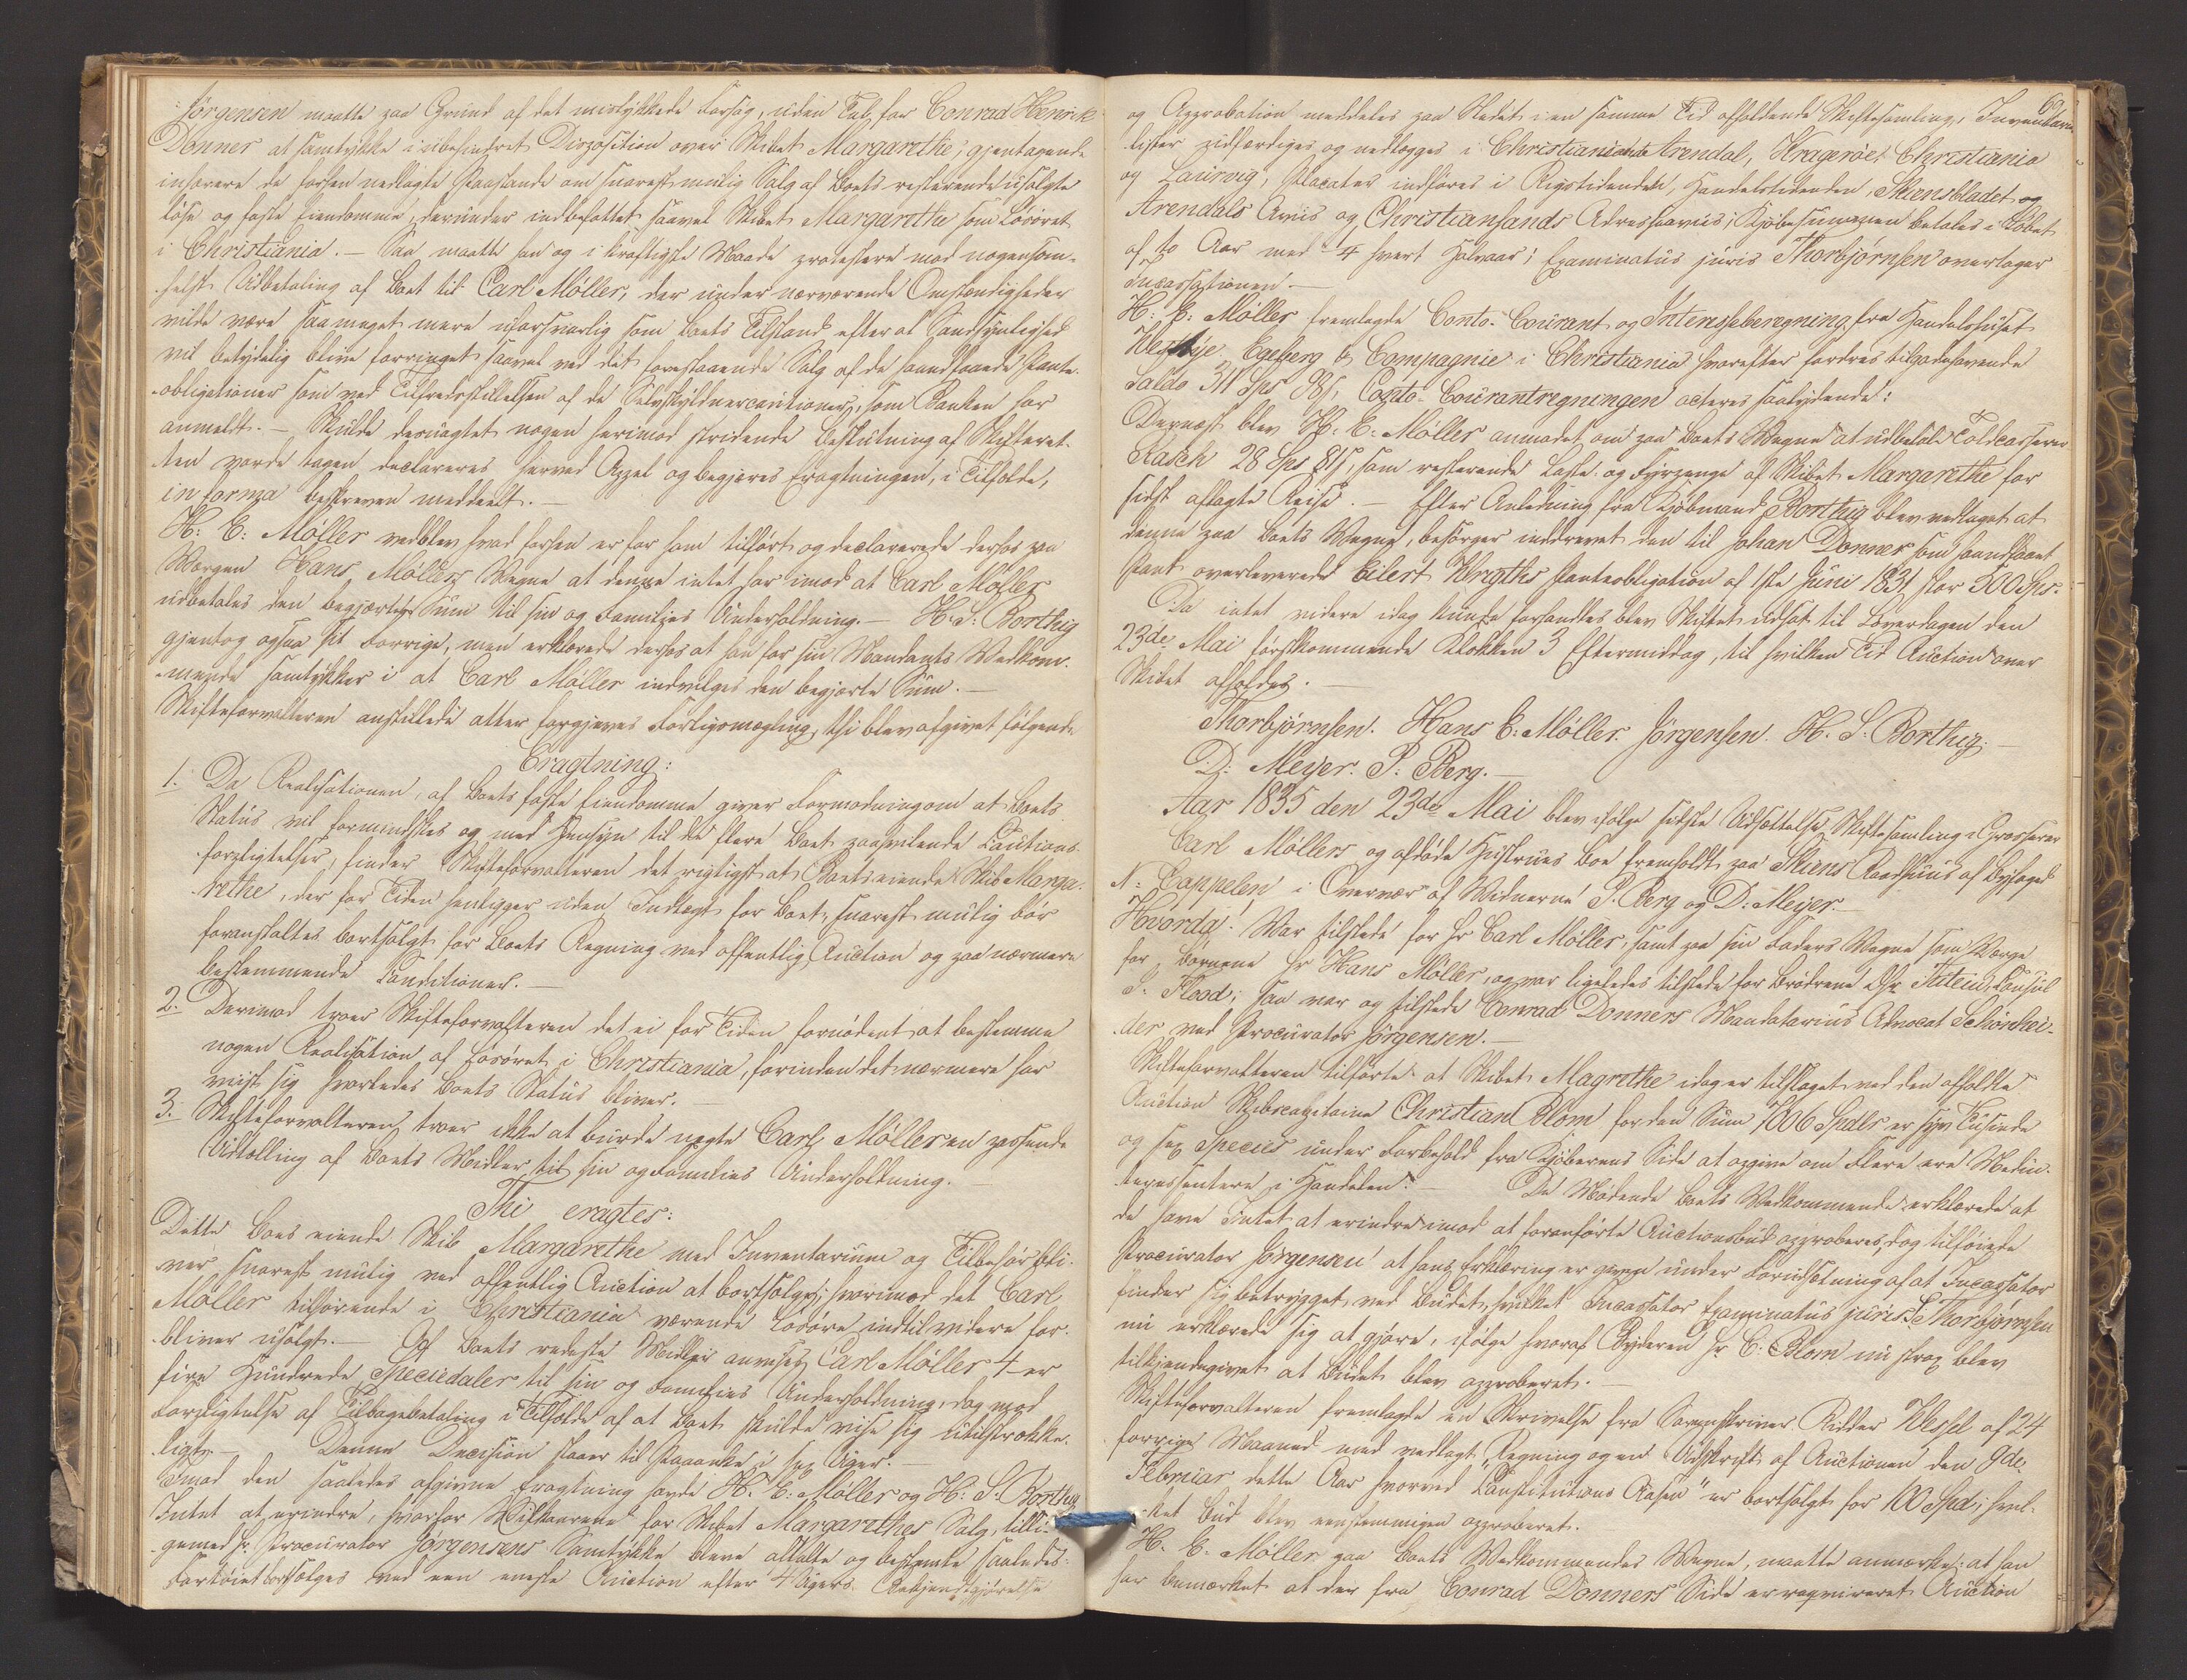 Jørgensen maatte paa Grund af det mislykkede Forsøg, uden Tab for Conrad Henrik
Donner at samtykke i ubehindret Disposition over Skibet Margarethe, gjentagende
inhærere de forhen nedlagte Paastande om snarest mulig Salg af Boets resterende usolgte
løse og faste Eiendomme, derunder indbefattet saavel Skibet Margarethe som Løsøret
i Christiania. — Saa maatte han og i kraftigste Maade protestere mod nogensom-
helst Udbetaling af Boet til Carl Møller, der under nærværende Omstændigheder
vilde være saa meget mere uforsvarlig som Boets Tilstand efter al Sandsynlighed
vil betydelig blive forringet saavel ved det forestaaende Salg af de haandfaaede Pante-
obligationer som ved Tilfredsstillelsen af de Selvskyldnercautioner, som Banken har
anmeldt. — Skulde desuagtet nogen herimod stridende Beslutning af Skifteret-
ten vorde tagen declareres herved Appel og begjæres Eragtningen, i Tilfælde,
in forma beskreven meddeelt. —
H: E: Møller vedblev hvad forhen er for ham tilført og declarerede derhos paa
Værgen Hans Møllers Vegne at denne intet har imod at Carl Møller
udbetales den begjærte Sum til sin og Families Underholdning. — H. S. Borthig
gjentog ogsaa sit Forrige, men erklærede derhos at han for sin Mandants Vedkom-
mende samtykker i at Carl Møller indvilges den begjærte Sum. —
Skifteforvalteren anstillede atter forgjæves Forligsmægling, thi blev afgivet følgende
Eragtning:
1. Da Realisationen, af Boets faste Eiendomme giver Formodning om at Boets
Status vil formindskes og med Hensyn til de flere Boet paahvilende Cautions-
forpligtelser, finder Skifteforvalteren det rigtigst at Boets eiende Skib Marga-
rethe, der for Tiden henligger uden Indtægt for Boet, snarest mulig bør
foranstaltes bortsolgt for Boets Regning ved offentlig Auction og paa nærmere
bestemmende Conditioner. —
2. Derimod troer Skifteforvalteren det ei for Tiden fornødent at bestemme
nogen Realisation af Løsøret i Christiania, forinden det nærmere har
viist sig hvorledes Boets Status bliver. —
3. Skifteforvalteren troer ikke at burde negte Carl Møller en passende
Udtælling af Boets Midler til sin og Families Underholdning. —
Thi eragtes:
Dette Boes eiende Skib Margarethe med Inventarium og Tilbehør bli-
ver snarest mulig ved offentlig Auction at bortsælges; hvorimod det Carl
Møller tilhørende i Christiania værende Løsøre indtil videre for-
bliver usolgt. — Af Boets redeste Midler anvises Carl Møller 4 er
fire Hundrede Speciedaler til sin og Families Underholdning, dog mod
Forpligtelse af Tilbagebetaling i Tilfælde af at Boet skulde vise sig utilstrække-
ligt. — Denne Decision staaer til Paaanke i sex Uger. —
Imod den saaledes afgivne Eragtning havde H. E: Møller og H: S. Borthig
Intet at erindre, hvorfor Vilkaarene for Skibet Margarethes Salg, tilli-
gemed Hr. Procurator Jørgensens Samtykke bleve aftalte og bestemte saaledes:
Fartøiet bortsælges ved een eneste Auction efter 4 Ugers Bekjendtgjørelse
69
og Approbation meddeles paa Stedet i en samme Tid afholdende Skiftesamling, Inventarie-
lister udfærdiges og nedlægges i Christiansand Arendal, Kragerøe, Christiania
og Laurvig, Placater indføres i Rigstidenden, Handelstidenden, Skiensbladet og
Arendals Avis og Christiansands Adresseavis; Kjøbesummen betales i Løbet
af to Aar med ¼ hvert Halvaar; Examinatus juris Thorbjørnsen overtager
Incassationen. —
H: E: Møller fremlagde Conto-Courant og Interesseberegning fra Handelshuset
Westye Egeberg & Compagnie i Christiania hvorefter fordres tilgodehavende
Saldo 311 Sps 98 s, Conto-Courantregningen acteres saalydende:
Dernæst blev H. E. Møller anmodet om paa Boets Vegne at udbetale Toldcasserer
Rasch 28 Sps 81 s, som resterende Laste- og Fyrpenge af Skibet Margarethe for
sidst aflagte Reise. — Efter Anledning fra Kjøbmand Borthig blev vedtaget at
denne paa Boets Vegne, besørger inddrevet den til Johan Donner som haandfaaet
Pant overleverede Eilert Wrigths Panteobligation af 1ste Juni 1831 stor 500 Sps.
Da intet videre idag kunde forhandles blev Skiftet udsat til Løverdagen den
23de Mai førstkommende Klokken 3 Eftermiddag, til hvilken Tid Auction over
Skibet afholdes. —
Thorbjørnsen. Hans E: Møller. Jørgensen. H. S. Borthig. —
D: Meyer. P. Berg. —
Aar 1835 den 23de Mai blev ifølge sidste Udsættelse Skiftesamling i Grosserer
Carl Møllers og afdøde Hustrues Boe fremholdt paa Skiens Raadhuus af Byfoged
N: Cappelen i Overvær af Vidnerne P. Berg og D: Meyer. —
Hvorda: Var tilstede for Hr Carl Møller, samt paa sin Faders Vegne som Værge
for Børnene Hr Hans Møller, og var ligeledes tilstede for Brødrene Consul
J. Flood; saa var og tilstede Conrad Donners Mandatarius Advocat Schønhei-
der ved Procurator Jørgensen. —
Skifteforvalteren tilførte at Skibet Magrethe idag er tilslaget ved den afholdte
Auction Skibscapitaine Christian Blom for den Sum 7006 Spdlr er syv Tusinde
og sex Species under Forbehold fra Kjøberens Side at opgive om Flere ere Medin-
teressentere i Handelen. — De Mødende Boets Vedkommende erklærede at
de have Intet at erindre imod at foranførte Auctionsbud approberes, dog tilføiede
Procurator Jørgensen at hans Erklæring er given under Forudsætning af at Incassator
finder sig betrygget ved Budet, hvilket Incassator Examinatus juris S. Thorbjørnsen
nu erklærede sig at gjøre, ifølge hvoraf Byderen Hr C: Blom nu strax blev
tilkjendegivet at Budet blev approberet. —
Skifteforvalteren fremlagde en Skrivelse fra Sorenskriver Ridder Wessel af 24
forrige Maaned med vedlagt Regning og en Udskrift af Auctionen den 9de
Februar dette Aar hvorved Constitutions Aasen" er bortsolgt for 100 Spd; hvil-
ket Bud blev eenstemmigen approberet.
H. E. Møller paa Boets Vedkommendes Vegne, maatte anmærke: at han
har bemærket at der fra Conrad Donners Side er requireret Auction